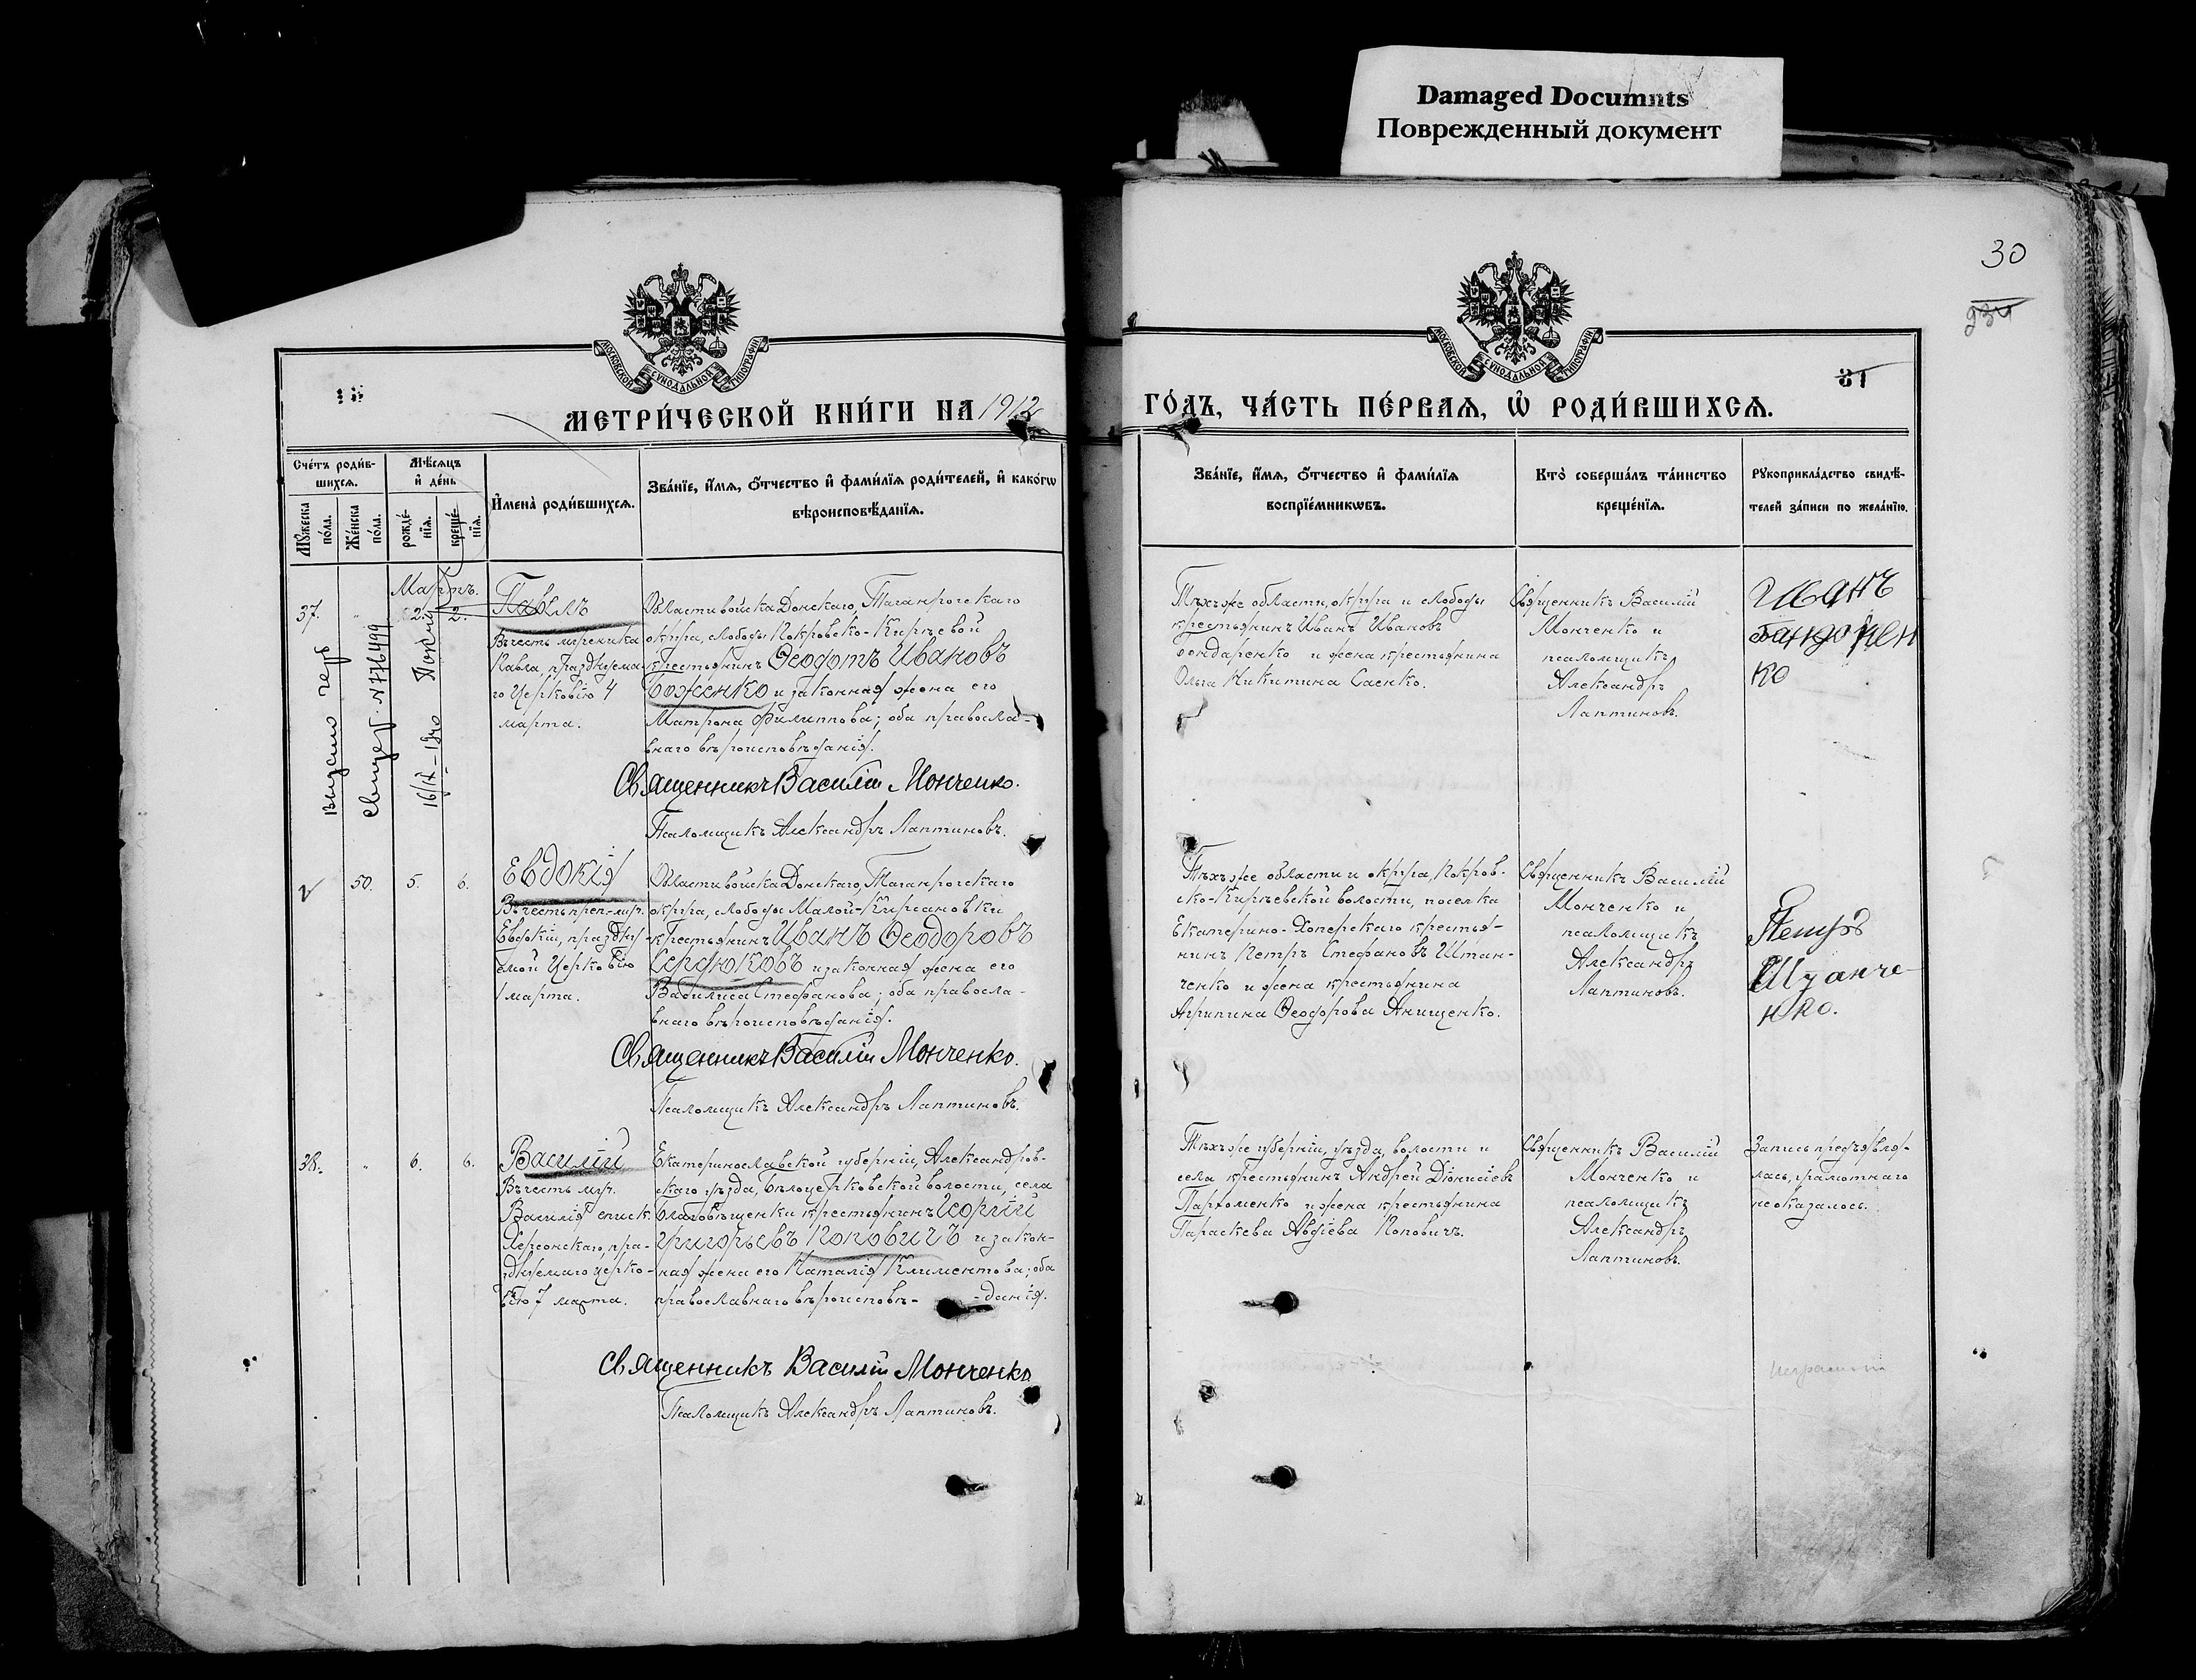 Damaged Documnts
Поврежденный документ
30
234
81
МОСКОВСКОЙ СѴНОДАЛЬНОЙ ТИПОГРАФІИ
МОСКОВСКОЙ СѴНОДАЛЬНОЙ ТИПОГРАФІИ
МЕТРИ́ЧЕСКОЙ КНИ́ГИ НА 1912
ГО́ДЪ, ЧА́СТЬ ПЕ́РВАѦ, Ѡ҆ РОДИ́ВШИХСѦ.
Сче́тъ роди́в-
шихсѧ.
Мꙋ́жеска по́ла.
Же́нска по́ла.
Мѣ́сѧцъ и҆ де́нь
рожде́-нїѧ.
креще́-нїѧ.
И҆мена̀ роди́вшихсѧ.
Зва́нїе, и҆́мѧ, ѻ҆́тчество и҆ фами́лїѧ роди́телей, и҆ како́гѡ
вѣроисповѣ́данїѧ.
Зва́нїе, и҆́мѧ, ѻ҆́тчество и҆ фами́лїѧ
воспрїе́мникѡвъ.
Кто̀ соверша́лъ та́инство
креще́нїѧ.
Рꙋкоприкла́дство свидѣ́-
телей за́писи по жела́нїю.
Мартъ.
37. " 2. 2.
Павелъ
Въ честь мученика
Павла, празднуема-
го Церковію 4
марта.
Области войска Донскаго, Таганрогскаго
округа, слободы Покровско-Киреевой
крестьянинъ Ѳеодотъ Ивановъ
Боженко и законная жена его
Матрона Филиппова; оба правосла-
внаго вѣроисповѣданія.
Священникъ Василій Монченко.
Псаломщикъ Александръ Лаптиновъ.
Тѣхъ же области, округа и слободы
крестьянинъ Иванъ Ивановъ
Бондаренко и жена крестьянина
Ольга Никитина Саенко.
Священникъ Василій
Монченко и
псаломщикъ
Александръ
Лаптиновъ.
Иванъ
ко
свидет. № 776499
16/IV-1940
50. 5. 6.
Евдокія
Въ честь преп.-муч.
Евдокіи, праздну-
емой Церковію
1 марта.
Области войска Донскаго, Таганрогскаго
округа, слободы Малой-Кирсановки
крестьянинъ Иванъ Ѳеодоровъ
Сердюковъ и законная жена его
Василиса Стефанова; оба правосла-
внаго вѣроисповѣданія.
Священникъ Василій Монченко.
Псаломщикъ Александръ Лаптиновъ.
Тѣхъ же области и округа, Покров-
ско-Киреевской волости, поселка
Екатерино-Хоперскаго крестья-
нинъ Петръ Стефановъ Штан-
ченко и жена крестьянина
Агрипина Ѳеодорова Анищенко.
Священникъ Василій
Монченко и
псаломщикъ
Александръ
Лаптиновъ.
Петръ
38. " 6. 6.
Василій
Въ честь муч.
Василія еписк.
Херсонскаго, пра-
зднуемаго Церко-
вію 7 марта.
Екатеринославской губерніи, Александров-
скаго уѣзда, Бѣлоцерковской волости, села
Благовѣщенки крестьянинъ Георгій
Григорьевъ Поповичъ и закон-
ная жена его Наталія Климентова; оба
православнаго вѣроисповѣ- -данія.
Священникъ Василій Монченко
Псаломщикъ Александръ Лаптиновъ.
Тѣхъ же губерніи, уѣзда, волости и
села крестьянинъ Андрей Діонисіевъ
Пархоменко и жена крестьянина
Параскева Авдіева Поповичъ.
Священникъ Василій
Монченко и
псаломщикъ
Александръ
Лаптиновъ.
Запись предъявля-
лась, грамотнаго
не оказалось.